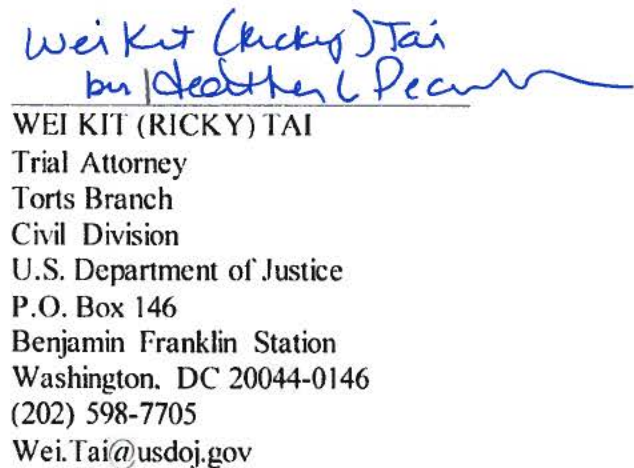 Wei Kit (Ricky) Tai
by Heather L
WEI KIT (RICKY) TAI
Trial Attorney
Torts Branch
Civil Division
U.S. Department of Justice
P.O. Box 146
Benjamin Franklin Station
Washington, DC 20044-0146
(202) 598-7705
Wei.Tai@usdoj.gov